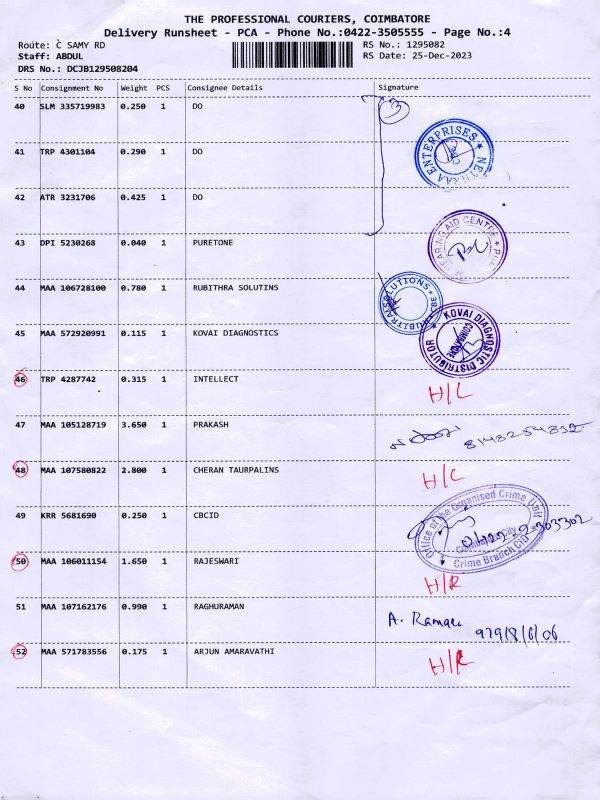 THE PROFESSIONAL COURIERS, COIMBATORE
Delivery Runsheet - PCA - Phone No.:0422-3505555 - Page No.:4
Route: C SAMY RD
RS No.: 1295082
Staff: ABDUL
RS Date: 25-Dec-2023
DRS No.: DCJB129508204
S No Consignment No Weight PCS Consignee Details Signature
40 SLM 335719983 0.250 1 DO
3
NETHRAA ENTERPRISES
41 TRP 4301104 0.290 1 DO
42 ATR 3231706 0.425 1 DO
43 DPI 5230268 0.040 1 PURETONE
HEARING AID CENTRE
44 MAA 106728100 0.780 1 RUBITHRA SOLUTINS
45 MAA 572920991 0.115 1 KOVAI DIAGNOSTICS
KOVAI DIAGNOSTIC DISTRIBUTOR
COIMBATORE
46 TRP 4287742 0.315 1 INTELLECT
H/L
47 MAA 105128719 3.650 1 PRAKASH
48 MAA 107580822 2.800 1 CHERAN TAURPALINS
H/C
49 KRR 5681690 0.250 1 CBCID
Office of the Organised Crime Unit
City
Crime Branch CID
50 MAA 106011154 1.650 1 RAJESWARI
H/R
51 MAA 107162176 0.990 1 RAGHURAMAN
A.
52 MAA 571783556 0.175 1 ARJUN AMARAVATHI
H/R